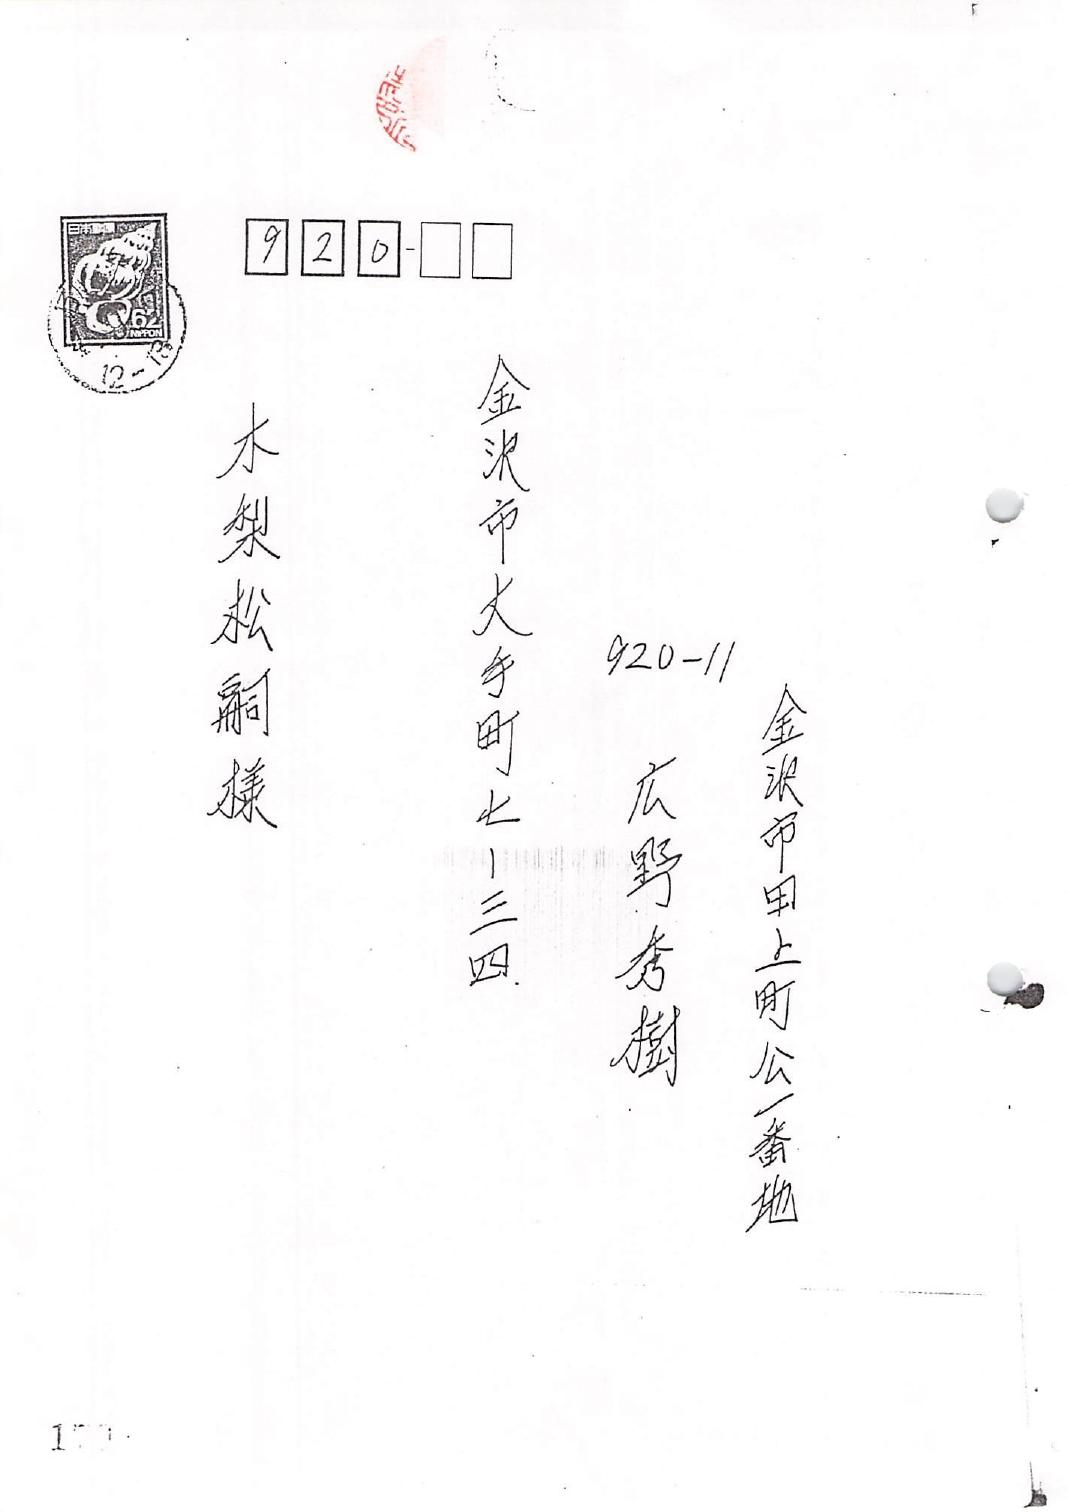 日本郵便
62
NIPPON
12-18
920-
金沢市大手町七-三四
木梨松嗣様
920-11
金沢市田上町公一番地
広野秀樹